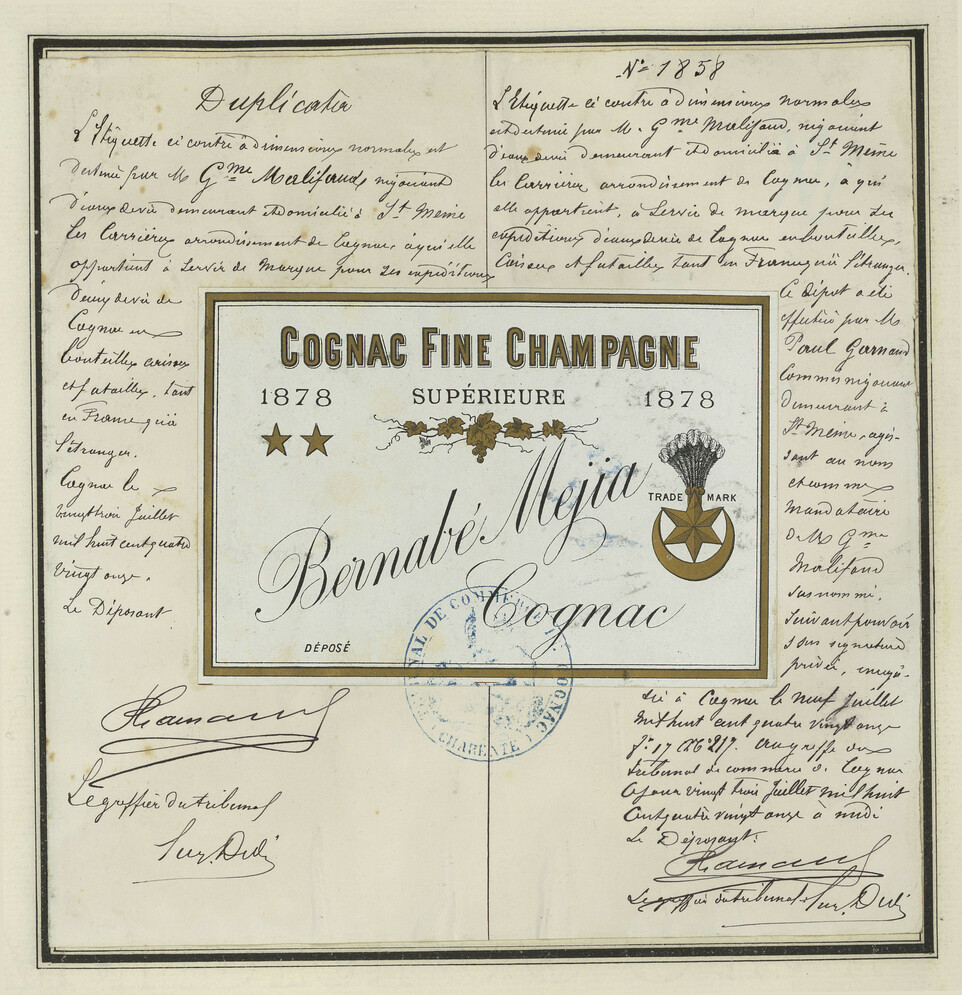 Duplicata
L'Etiquette ci contre à dimensions normales est
destinée par M. Gme Malifaud, négociant
d'eaux de vie demeurant et domicilié à St Meme
les Carrières arrondissement de Cognac, à qui elle
appartient à servir de marque pour ses expéditions
d'eaux de vie de
Cognac en
bouteilles caisses
et futailles, tant
en France qu'à
l'étranger.
Cognac le
vingt trois Juillet
mil huit cent quatre
vingt onze.
Le Déposant
Le greffier du tribunal
No 1858
L'Etiquette ci contre à dimensions normales
est destinée par M. Gme Malifaud, négociant
d'eaux de vie demeurant et domicilié à St Meme
les Carrières arrondissement de Cognac, à qui
elle appartient, à servir de marque pour ses
expéditions d'eaux de vie de Cognac en bouteilles,
caisses et futailles tant en France qu'à l'étranger.
Ce dépôt a été
effectué par M
Paul Garnaud
Commis négociant
demeurant à
St Meme, agis-
sant au nom
et comme
mandataire
de M Gme
Malifaud
susnommé,
suivant pouvoir
sous signature
privée, enregis-
tré à Cognac le neuf Juillet
mil huit cent quatre vingt onze
fo 17 Co 217. au greffe du
tribunal de commerce de Cognac
Ce jour vingt trois Juillet mil huit
cent quatre vingt onze à midi
Le Déposant.
Le greffier du tribunal
COGNAC FINE CHAMPAGNE
1878 SUPÉRIEURE 1878
TRADE MARK
Bernabé Mejia
Cognac
DÉPOSÉ
TRIBUNAL DE COMMERCE DE COGNAC
(CHARENTE)